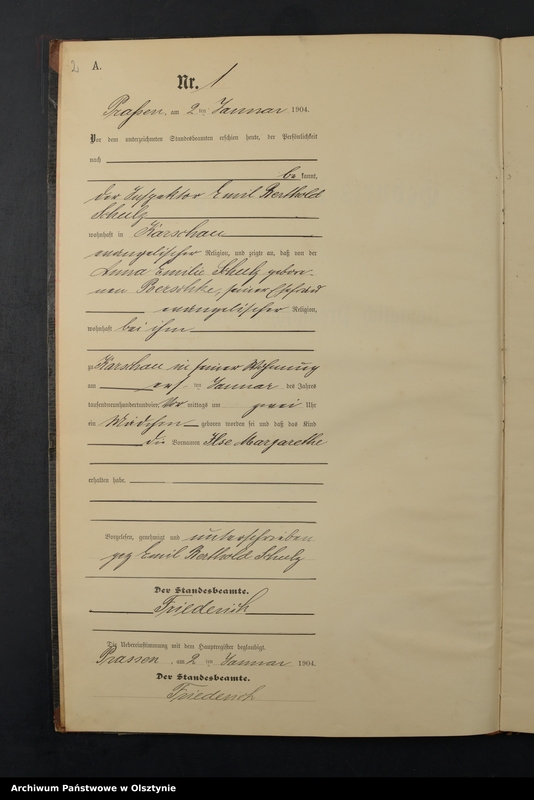 2
A.
Nr. 1
Praßen, am 2ten Januar 1904.
Vor dem unterzeichneten Standesbeamten erschien heute, der Persönlichkeit
nach
bekannt,
der Inspektor Emil Berthold
Schulz
wohnhaft in Karschau
evangelischer Religion, und zeigte an, daß von der
Anna Emilie Schulz gebore-
nen Perschke, seiner Ehefrau
evangelischer Religion,
wohnhaft bei ihm
zu Karschau in seiner Wohnung
am ersten Januar des Jahres
tausendneunhundertundvier Vormittags um zwei Uhr
ein Mädchen geboren worden sei und daß das Kind
die Vornamen Ilse Margarethe
erhalten habe.
Vorgelesen, genehmigt und unterschrieben
gez Emil Berthold Schulz
Der Standesbeamte.
Friederich
Die Uebereinstimmung mit dem Hauptregister beglaubigt.
Prassen, am 2ten Januar 1904.
Der Standesbeamte.
Friederich
Archiwum Państwowe w Olsztynie